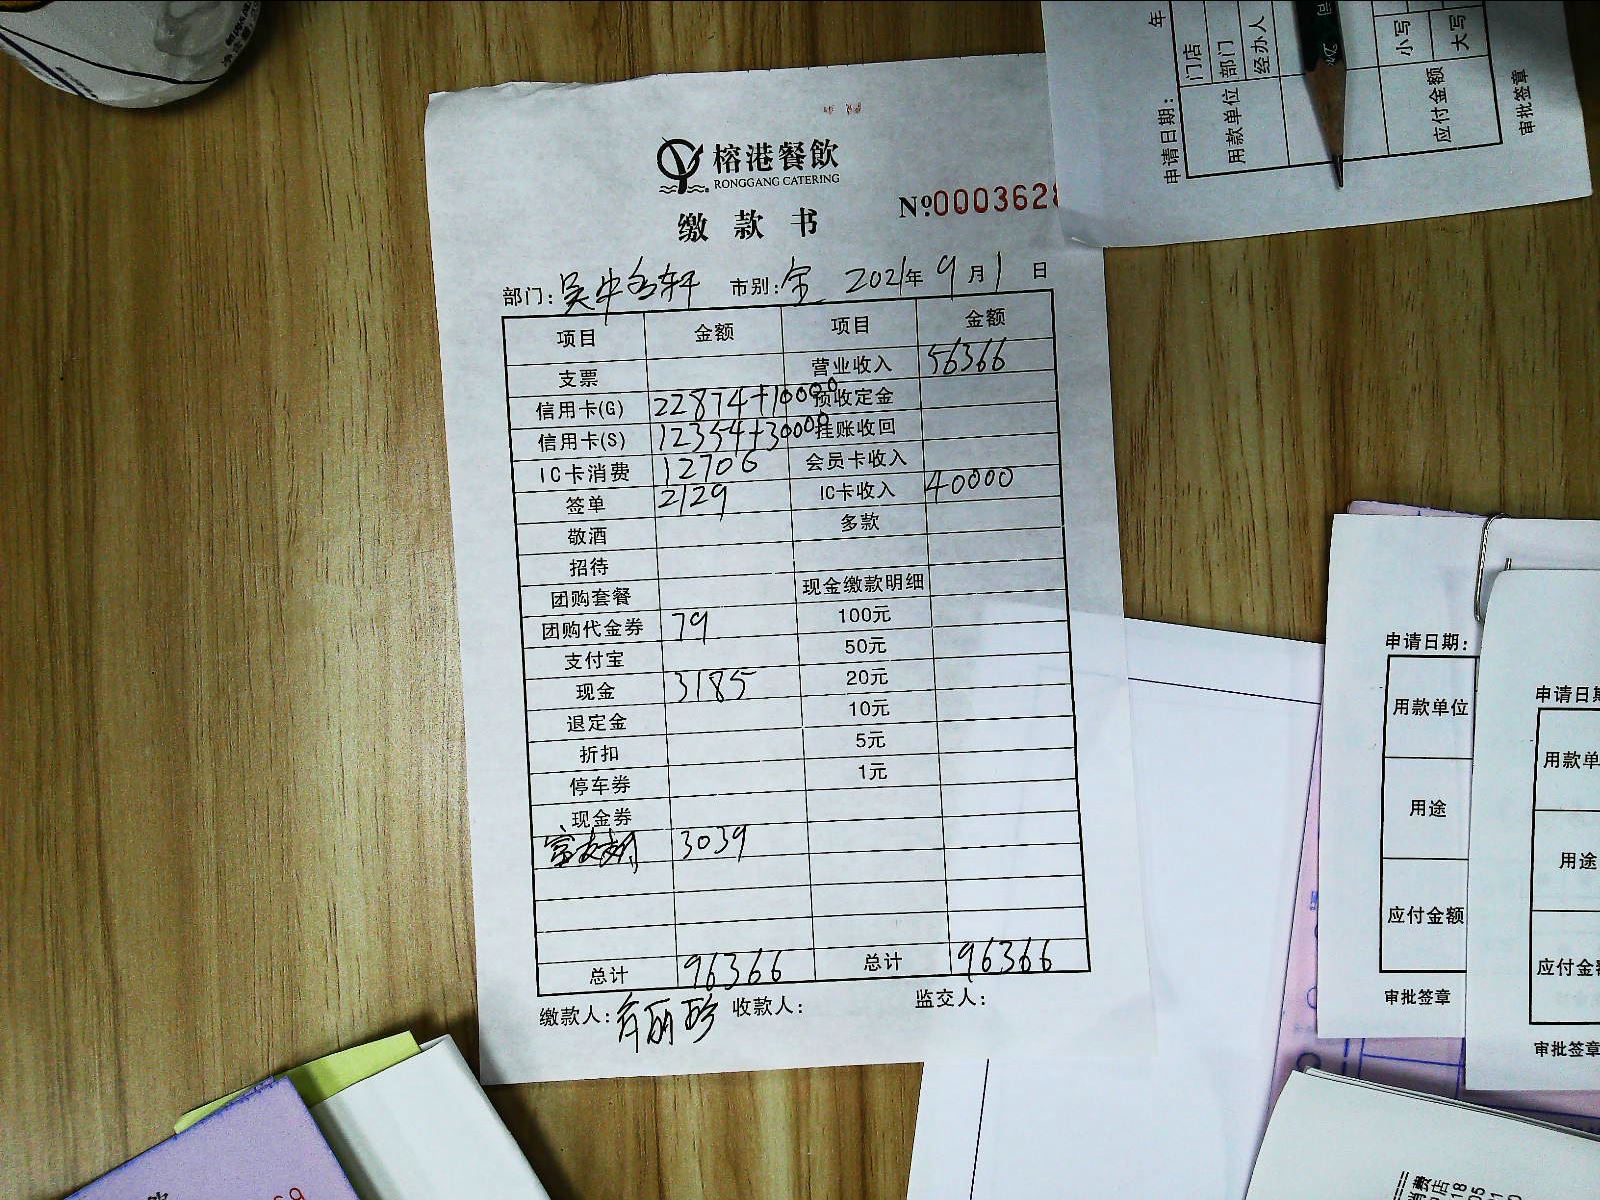 榕港餐飲
RONGGANG CATERING
缴款书
№0003628
部门:吴中名轩 市别:全 2021年9月1日
项目 金额 项目 金额
支票 营业收入 56366
信用卡(G) 22874+10000 预收定金
信用卡(S) 12354+30000 挂账收回
IC卡消费 12706 会员卡收入
签单 2129 IC卡收入 40000
敬酒 多款
招待
团购套餐 现金缴款明细
团购代金券 79 100元
支付宝 50元
现金 3185 20元
退定金 10元
折扣 5元
停车券 1元
现金券
3039
总计 96366 总计 96366
缴款人: 收款人: 监交人:
申请日期: 年
用款单位 门店 部门 经办人
应付金额 小写 大写
审批签章
申请日期:
用款单位
用途
应付金额
审批签章
申请日期
用款单
用途
应付金
审批签章